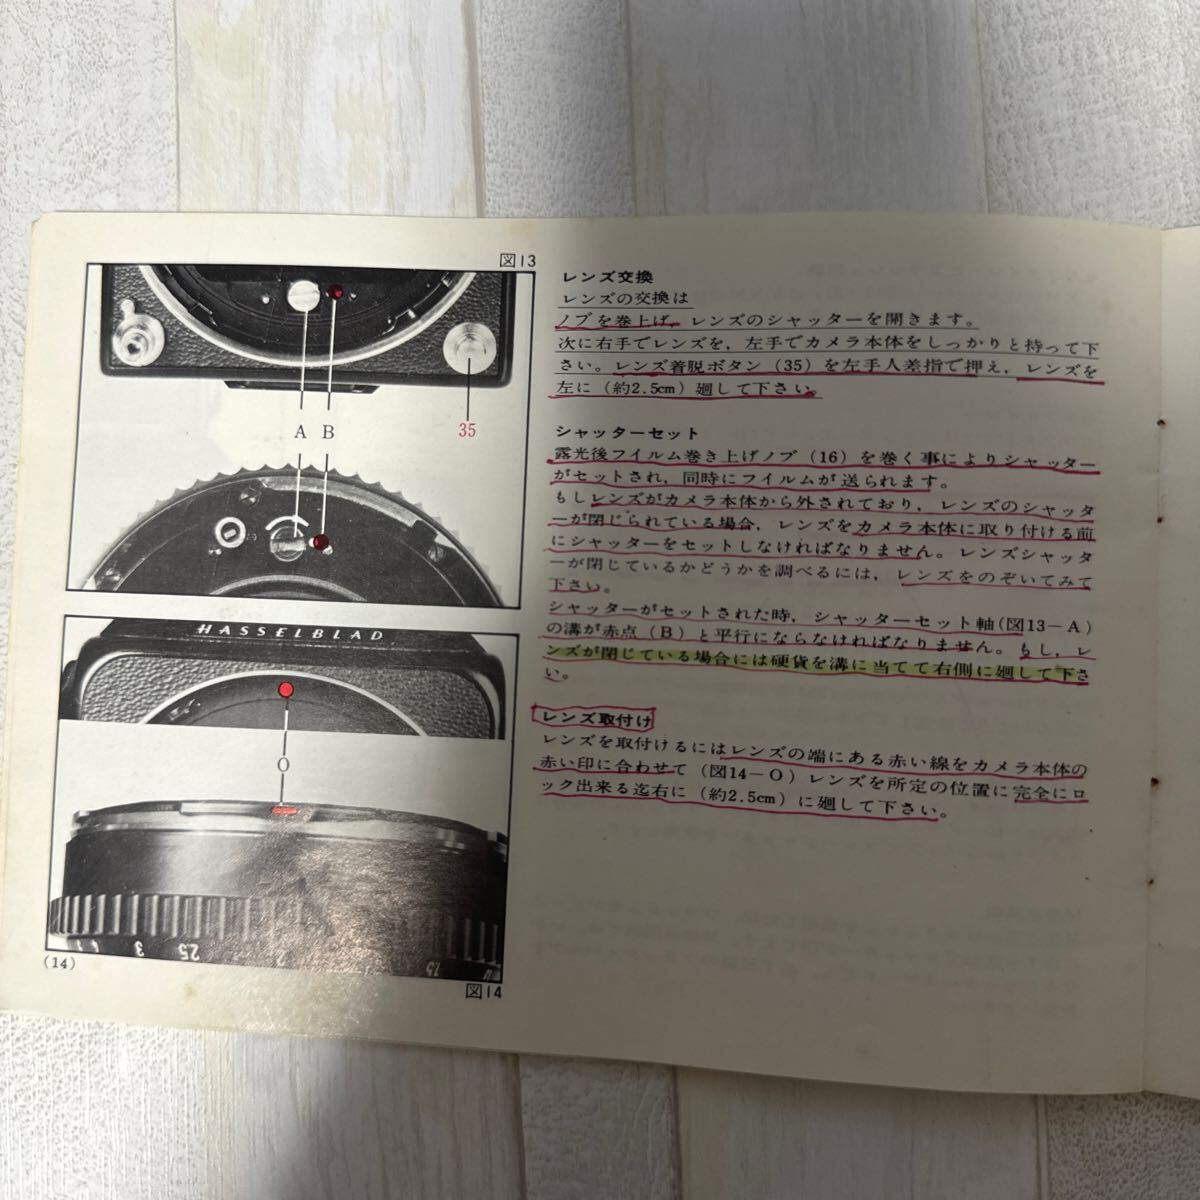 図13
A B
35
HASSELBLAD
O
4 3 25 2
(14)
図14
レンズ交換
レンズの交換は
ノブを巻上げ，レンズのシャッターを開きます。
次に右手でレンズを，左手でカメラ本体をしっかりと持って下
さい。レンズ着脱ボタン（35）を左手人差指で押え，レンズを
左に（約2.5cm）廻して下さい。
シャッターセット
露光後フイルム巻き上げノブ（16）を巻く事によりシャッター
がセットされ，同時にフイルムが送られます。
もしレンズがカメラ本体から外されており，レンズのシャッタ
ーが閉じられている場合，レンズをカメラ本体に取り付ける前
にシャッターをセットしなければなりません。レンズシャッタ
ーが閉じているかどうかを調べるには，レンズをのぞいてみて
下さい。
シャッターがセットされた時，シャッターセット軸（図13－A）
の溝が赤点（B）と平行にならなければなりません。もし，レ
ンズが閉じている場合には硬貨を溝に当てて右側に廻して下さ
い。
レンズ取付け
レンズを取付けるにはレンズの端にある赤い線をカメラ本体の
赤い印に合わせて（図14－O）レンズを所定の位置に完全にロ
ック出来る迄右に（約2.5cm）に廻して下さい。